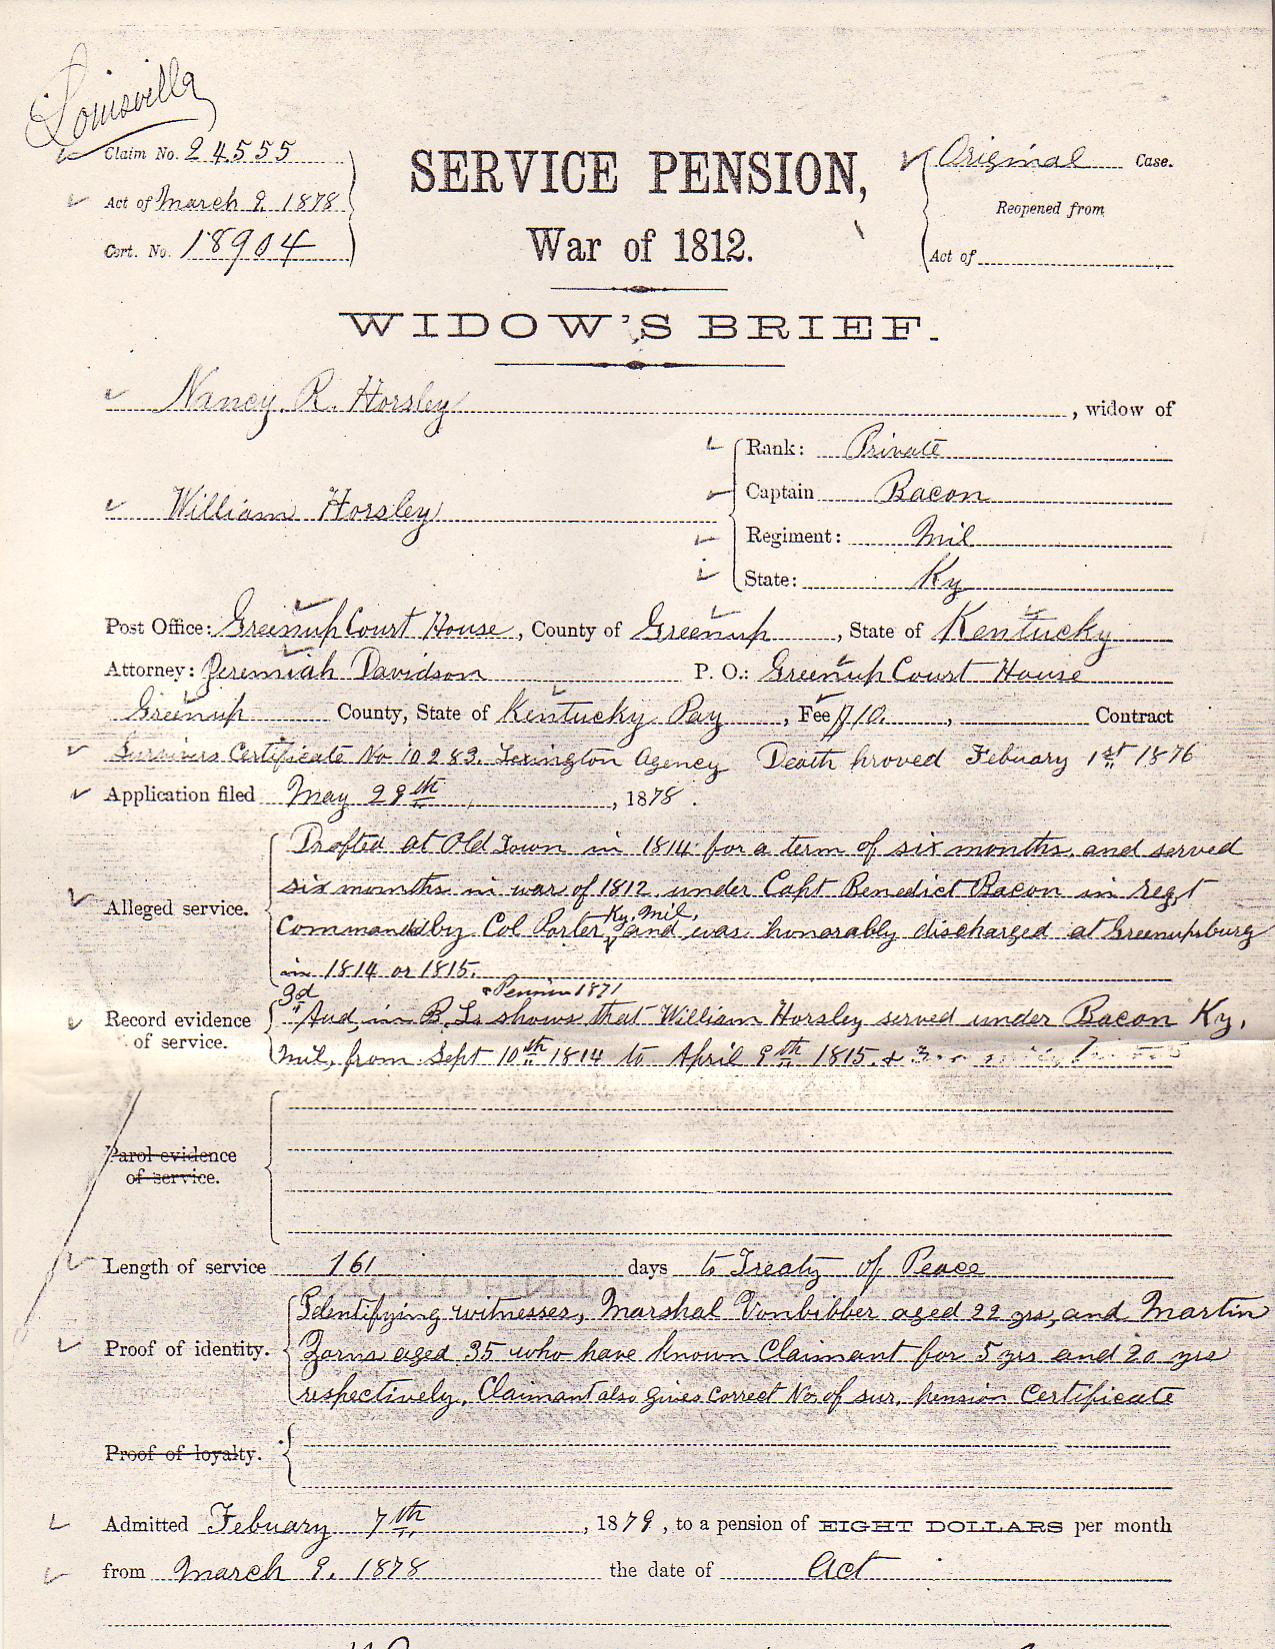 Louisville
Claim No. 24555
Act of March 9. 1878
Cert. No. 18904
SERVICE PENSION,
War of 1812.
Original Case.
Reopened from
Act of
WIDOW'S BRIEF.
Nancy. R. Horsley, widow of
William Horsley
Rank: Private
Captain Bacon
Regiment: Mil
State: Ky
Post Office: Greenup Court House, County of Greenup, State of Kentucky
Attorney: Jeremiah Davidson P. O.: Greenup Court House
Greenup County, State of Kentucky Pay, Fee $10., Contract
Survivors Certificate No 10283. Lexington Agency Death proved Febuary 1st 1876
Application filed May 29th, 1878.
Alleged service.
Drafted at Old Town in 1814 for a term of six months. and served
six months in war of 1812 under Capt Benedict Bacon in regt
Commanded by Col Porter Ky. Mil, and was honorably discharged at Greenupsburg
in 1814 or 1815.
Record evidence of service.
3d Aud, in B. L. & Pension 1871 shows that William Horsley served under Bacon Ky,
Mil, from Sept 10th 1814 to April 9th 1815. &
Parol evidence
of service.
Length of service 161 days to Treaty of Peace
Proof of identity.
Identifying witnesses, Marshal Vonbibber aged 22 yrs, and Martin
Zorns aged 35 who have known Claimant for 5 yrs and 20 yrs
respectively. Claimant also gives correct No. of sur. pension certificate
Proof of loyalty.
Admitted Febuary 7th, 1879, to a pension of EIGHT DOLLARS per month
from March 9. 1878 the date of Act